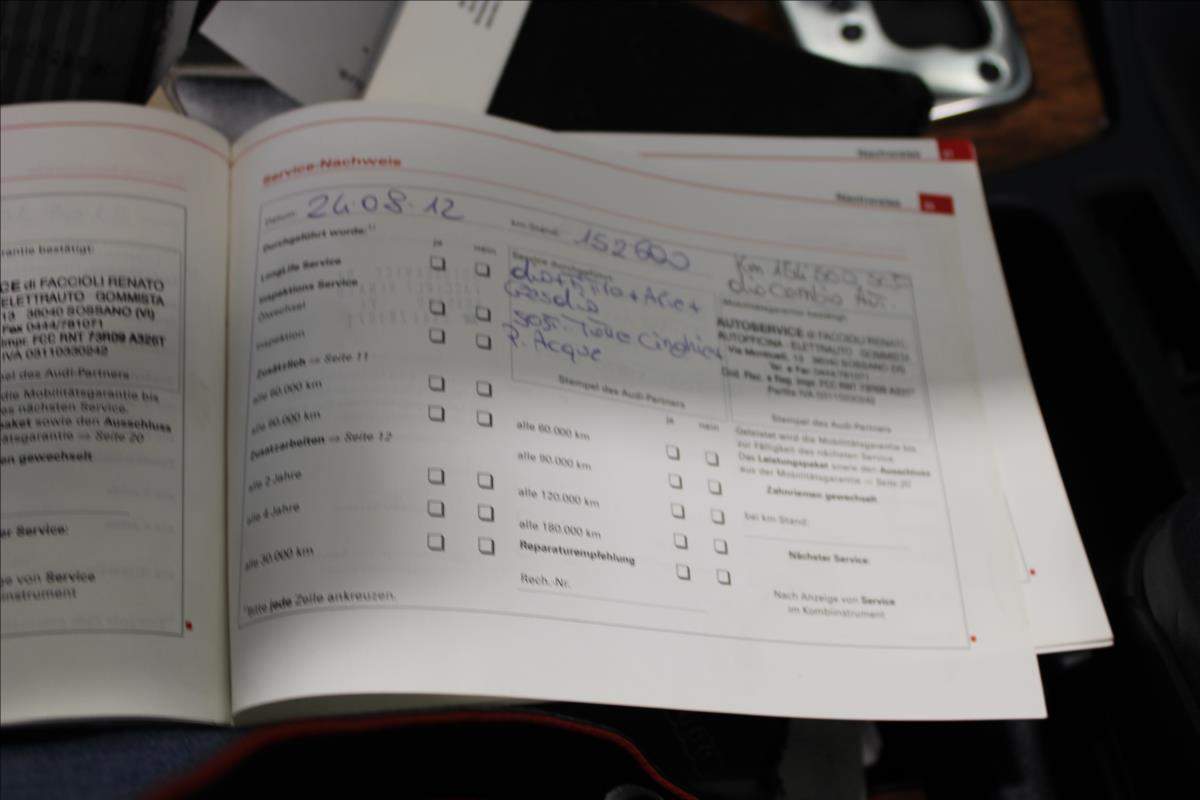 Nachweise
Nachweise
rantie bestätigt:
CE di FACCIOLI RENATO
ELETTRAUTO GOMMISTA
13 36040 SOSSANO (VI)
Fax 0444/781071
Impr. FCC RNT 73R09 A326T
IVA 03110330242
pel des Audi-Partners
die Mobilitätsgarantie bis
es nächsten Service.
paket sowie den Ausschluss
ätsgarantie ⇒ Seite 20
en gewechselt
er Service:
ge von Service
instrument
Service-Nachweis
Datum: 24.08.12
km-Stand: 152600
Durchgeführt wurde:¹⁾
ja nein
LongLife Service
Inspektions Service
Ölwechsel
Inspektion
Zusätzlich ⇒ Seite 11
alle 60.000 km
alle 90.000 km
Zusatzarbeiten ⇒ Seite 12
alle 2 Jahre
alle 4 Jahre
alle 30.000 km
¹⁾Bitte jede Zeile ankreuzen.
Gasolio
P. Acque
Stempel des Audi-Partners
ja nein
alle 60.000 km
alle 90.000 km
alle 120.000 km
alle 180.000 km
Reparaturempfehlung
Rech.-Nr.
Mobilitätsgarantie bestätigt:
AUTOSERVICE di FACCIOLI RENATO
AUTOFFICINA - ELETTRAUTO GOMMISTA
Stempel des Audi-Partners
Geleistet wird die Mobilitätsgarantie bis
zur Fälligkeit des nächsten Service.
Das Leistungspaket sowie den Ausschluss
aus der Mobilitätsgarantie ⇒ Seite 20
Zahnriemen gewechselt
bei km-Stand:
Nächster Service:
Nach Anzeige von Service
im Kombiinstrument